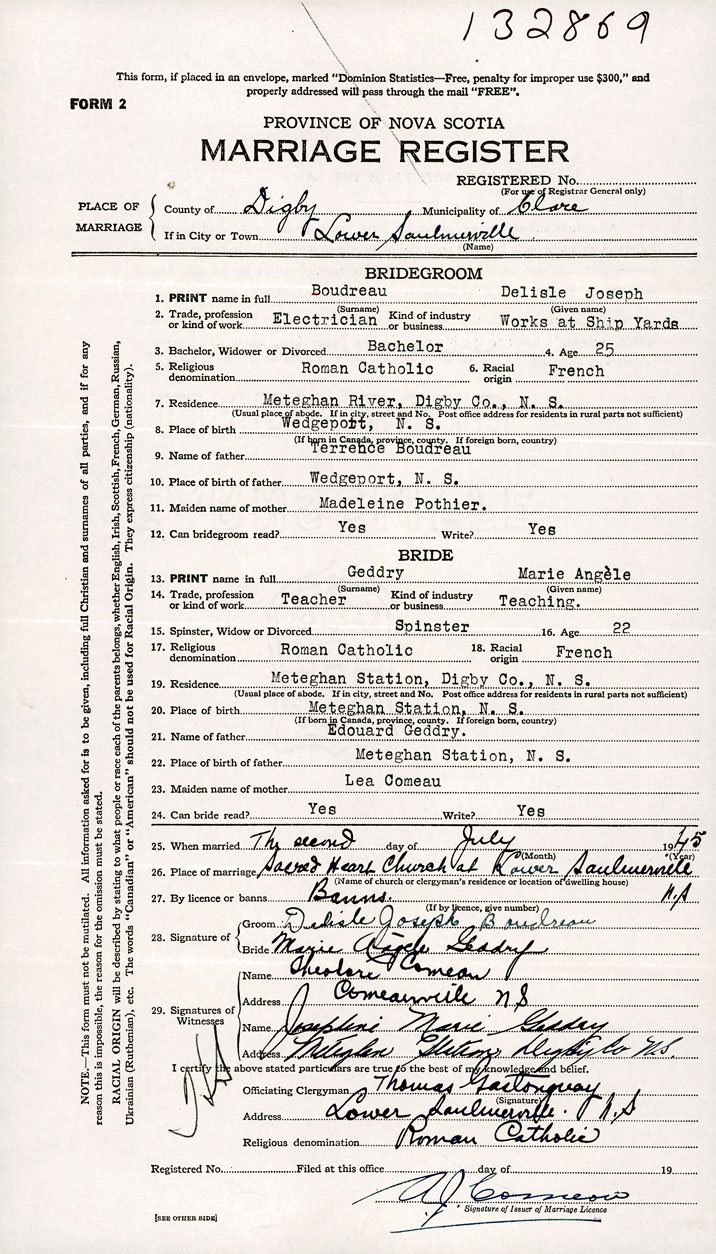 132869
This form, if placed in an envelope, marked "Dominion Statistics—Free, penalty for improper use $300," and
properly addressed will pass through the mail "FREE".
FORM 2
PROVINCE OF NOVA SCOTIA
MARRIAGE REGISTER
REGISTERED No.
(For use of Registrar General only)
PLACE OF MARRIAGE
County of Digby Municipality of Clare
If in City or Town Lower Saulnierville
(Name)
BRIDEGROOM
1. PRINT name in full Boudreau Delisle Joseph
(Surname) (Given name)
2. Trade, profession or kind of work Electrician Kind of industry or business Works at Ship Yards
3. Bachelor, Widower or Divorced Bachelor 4. Age 25
5. Religious denomination Roman Catholic 6. Racial origin French
7. Residence Meteghan River, Digby Co., N. S.
(Usual place of abode. If in city, street and No. Post office address for residents in rural parts not sufficient)
8. Place of birth Wedgeport, N. S.
(If born in Canada, province, county. If foreign born, country)
9. Name of father Terrence Boudreau
10. Place of birth of father Wedgeport, N. S.
11. Maiden name of mother Madeleine Pothier.
12. Can bridegroom read? Yes Write? Yes
BRIDE
13. PRINT name in full Geddry Marie Angèle
(Surname) (Given name)
14. Trade, profession or kind of work Teacher Kind of industry or business Teaching.
15. Spinster, Widow or Divorced Spinster 16. Age 22
17. Religious denomination Roman Catholic 18. Racial origin French
19. Residence Meteghan Station, Digby Co., N. S.
(Usual place of abode. If in city, street and No. Post office address for residents in rural parts not sufficient)
20. Place of birth Meteghan Station, N. S.
(If born in Canada, province, county. If foreign born, country)
21. Name of father Edouard Geddry.
22. Place of birth of father Meteghan Station, N. S.
23. Maiden name of mother Lea Comeau
24. Can bride read? Yes Write? Yes
25. When married The second day of July 1945
(Month) (Year)
26. Place of marriage Sacred Heart Church at Lower Saulnierville
(Name of church or clergyman's residence or location of dwelling house)
N.S
27. By licence or banns Banns.
(If by licence, give number)
28. Signature of
Groom Delisle Joseph Boudreau
Bride Marie Angèle Geddry
29. Signatures of Witnesses
Name Theodore Comeau
Address Comeauville N S
Name Josephine Marie Geddry
Address Meteghan Station Digby Co N.S.
I certify the above stated particulars are true to the best of my knowledge and belief.
Officiating Clergyman Thomas Gastonguay
(Signature)
Address Lower Saulnierville. N.S
Religious denomination Roman Catholic
Registered No. Filed at this office day of 19
A J Comeau
Signature of Issuer of Marriage Licence
[SEE OTHER SIDE]
NOTE.—This form must not be mutilated. All information asked for is to be given, including full Christian and surnames of all parties, and if for any
reason this is impossible, the reason for the omission must be stated.
RACIAL ORIGIN will be described by stating to what people or race each of the parents belongs, whether English, Irish, Scottish, French, German, Russian,
Ukrainian (Ruthenian), etc. The words "Canadian" or "American" should not be used for Racial Origin. They express citizenship (nationality).